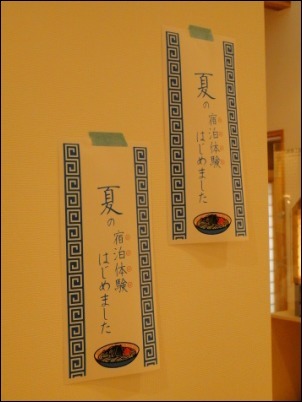 夏の
宿泊体験
はじめました
夏の
宿泊体験
はじめました